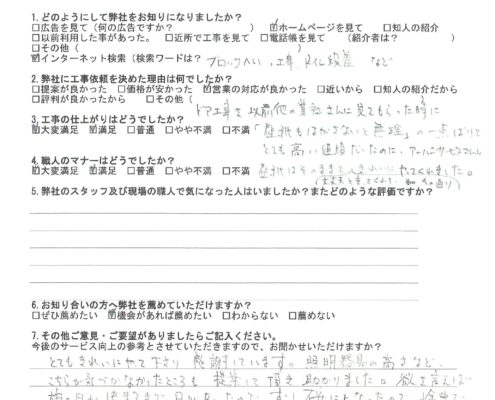 1. どのようにして弊社をお知りになりましたか?
□広告を見て（何の広告ですか?　　　　　　　）　☑ホームページを見て　□知人の紹介
□以前利用した事があった。　□近所で工事を見て　□電話帳を見て　（紹介者は?　　　　　）
□その他（　　　　　　　　　　）
☑インターネット検索（検索ワードは?　ブロックへい、工事、トイレ段差　など
2. 弊社に工事依頼を決めた理由は何でしたか?
□提案が良かった　□価格が安かった　☑営業の対応が良かった　□近いから　□知人だから
□評判が良かったから　□その他（
ドア工事を以前他の業社さんに見てもらった時に
3. 工事の仕上がりはどうでしたか?
☑大変満足　☑満足　□普通　□やや不満　□不満
「壁紙もはがさないと無理」の一点ばりで
とても高い見積だったのに、
4. 職人のマナーはどうでしたか?
☑大変満足　☑満足　□普通　□やや不満　□不満
壁紙はそのままで大変きれいにやってくれました。
5. 弊社のスタッフ及び現場の職人で気になった人はいましたか?またどのような評価ですか?
6. お知り合いの方へ弊社を薦めていただけますか?
□ぜひ薦めたい　☑機会があれば薦めたい　□わからない　□薦めない
7. その他ご意見・ご要望がありましたらご記入ください。
今後のサービス向上の参考とさせていただきますので、お聞かせいただけますか?
とてもきれいにやって下さり　感謝しています。照明器具の高さなど、
こちらが気づかなかったところも　提案して頂き　助かりました。欲を言えば